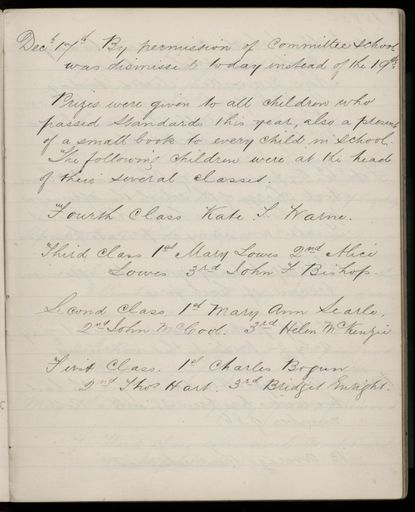 Decr 17th By permission of Committee School
was dismissed today instead of the 19th.
Prizes were given to all children who
passed Standards this year, also a present
of a small book to every child in school.
The following children were at the head
of their several classes.
Fourth Class Kate S. Warne.
Third Class 1st Mary Lowes 2nd Alice
Lowes 3rd John F Bishop.
Second Class. 1st Mary Ann Searle.
2nd John McCool. 3rd Helen McKenzie
First Class. 1st Charles Bogun
2nd Thos Hart. 3rd Bridget Enright.